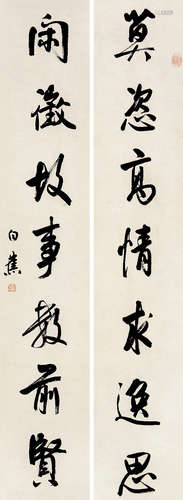 莫恣高情求逸思
閑徵故事前賢
白蕉